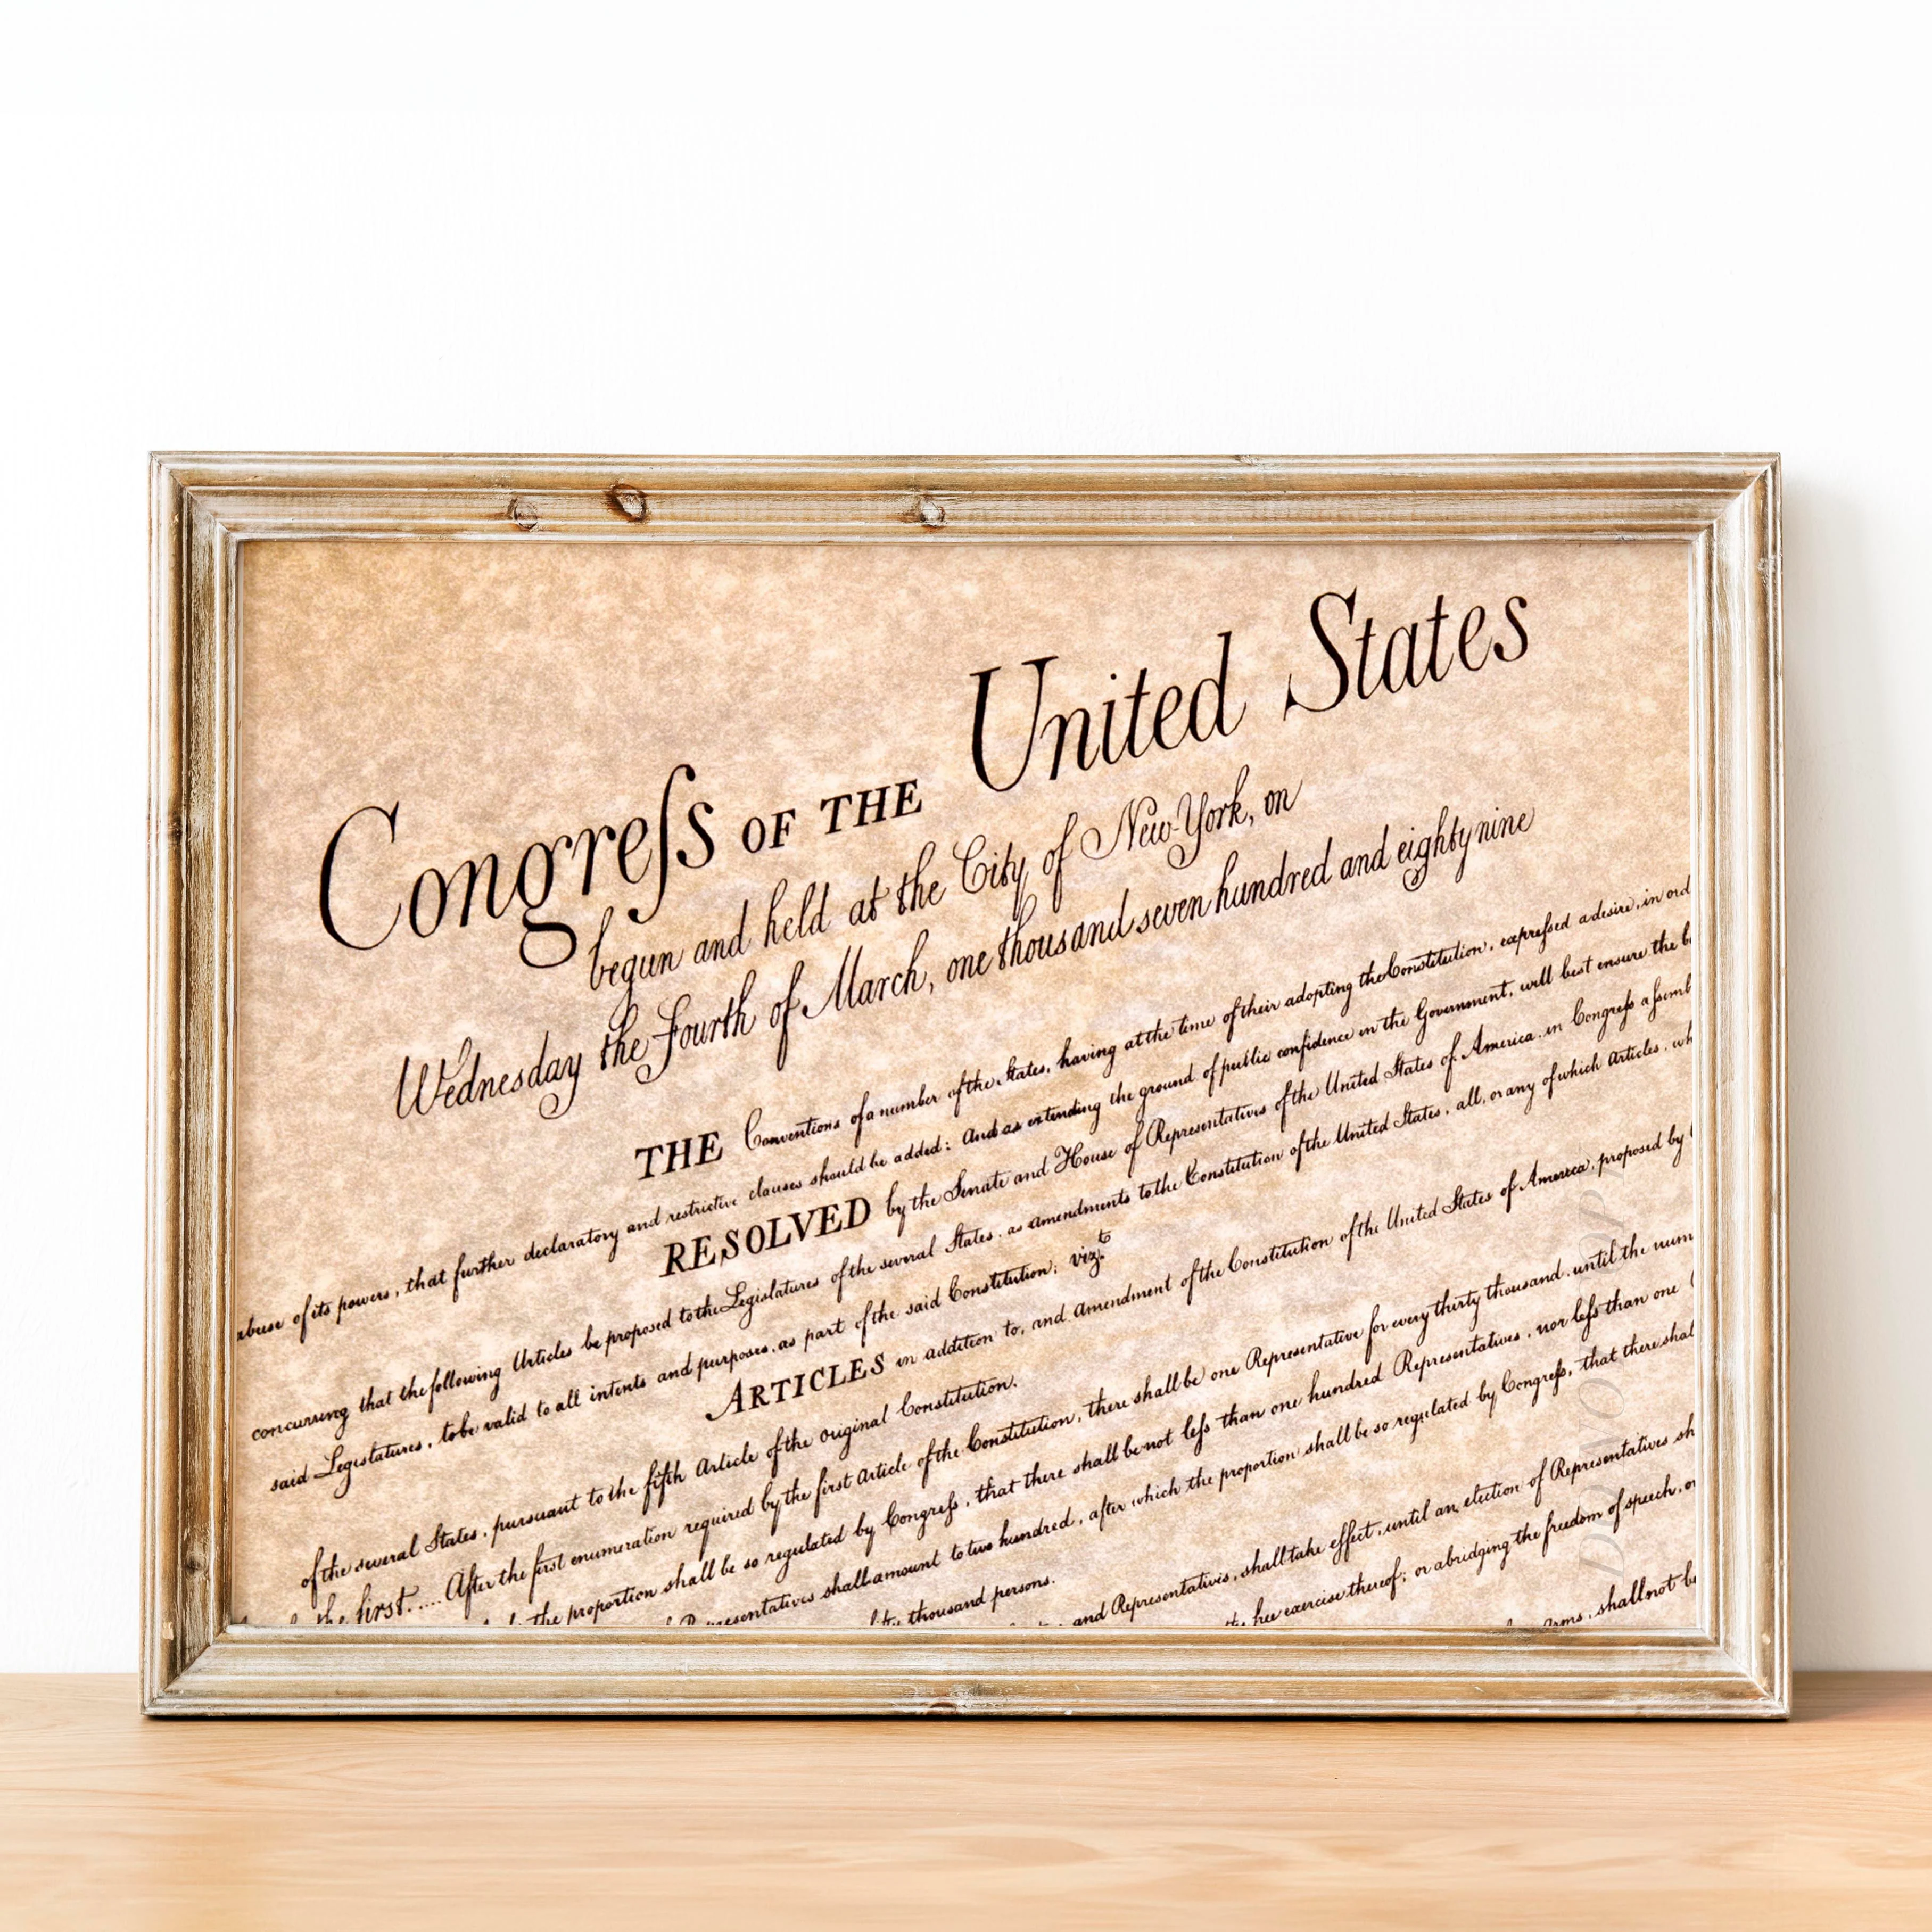 Congreſs OF THE United States
begun and held at the City of New-York, on
Wednesday the Fourth of March, one thousand seven hundred and eighty nine
THE Conventions of a number of the States, having at the time of their adopting the Constitution, expreſsed a desire, in ord
abuse of its powers, that further declaratory and restrictive clauses should be added: And as extending the ground of public confidence in the Government, will best ensure the b
RESOLVED by the Senate and House of Representatives of the United States of America, in Congreſs aſsemb
concurring that the following Articles be proposed to the Legislatures of the several States, as amendments to the Constitution of the United States, all, or any of which Articles, wh
said Legislatures, to be valid to all intents and purposes, as part of the said Constitution; vizt.
ARTICLES in addition to, and Amendment of the Constitution of the United States of America, proposed by
of the several States, pursuant to the fifth Article of the original Constitution.
the first..... After the first enumeration required by the first Article of the Constitution, there shall be one Representative for every thirty thousand, until the num
the proportion shall be so regulated by Congreſs, that there shall be not leſs than one hundred Representatives, nor leſs than one
Representatives shall amount to two hundred, after which the proportion shall be so regulated by Congreſs, that there shal
thousand persons.
and Representatives, shall take effect, until an election of Representatives sh
free exercise thereof; or abridging the freedom of speech, or
Arms, shall not be